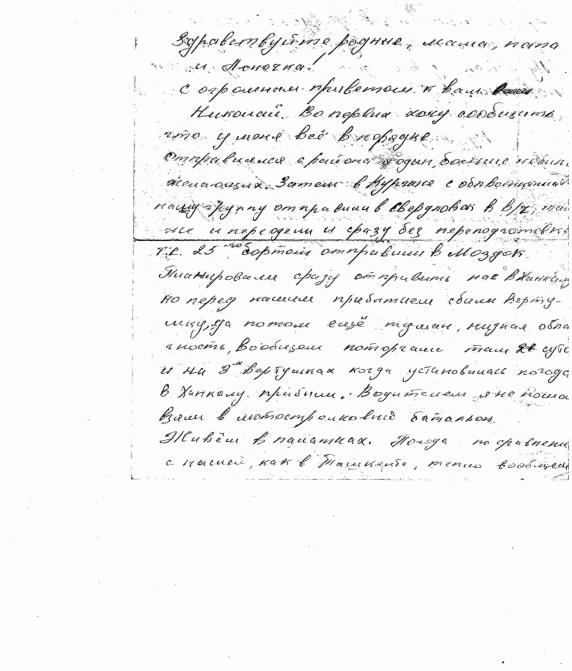 Здравствуйте, родные, мама, папа
и Леночка!
С огромным приветом к вам
Николай. Во первых хочу сообщить
что у меня всё в порядке.
Отправился с района один, больше не было
желающих. Затем в Кургане с облвоенкомата
нашу группу отправили в Свердловск в В/ч, там
же и переодели и сразу без переподготовки
т.е. 25 го бортом отправили в Моздок.
Планировали сразу отправить нас в Ханкалу
но перед нашим прибытием сбили верту-
шку, да потом ещё туман, низкая обла
чность, вообщем поторчали там суток
и на 2х вертушках когда установилась погода
в Ханкалу прибыли. Водителем я не попал
взяли в мотострелковый батальон.
Живём в палатках. Погода по сравнению
с нашей, как в Ташкенте, тепло вообщем